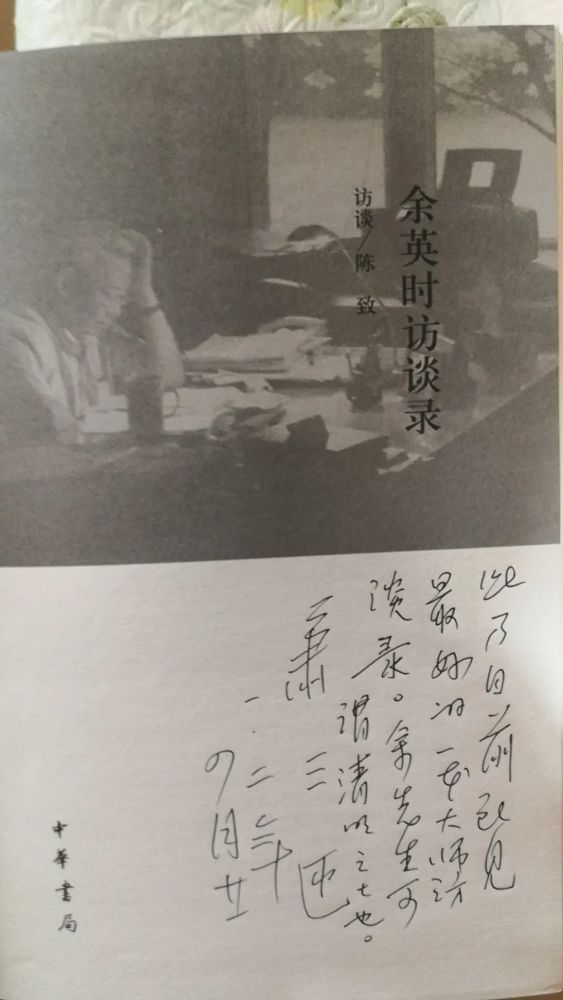 余英时访谈录
访谈/陈 致
此乃目前所见
最好的一本大师访
谈录。余先生可
谓清明之士也。
萧三匝
年
四月廿
中華書局